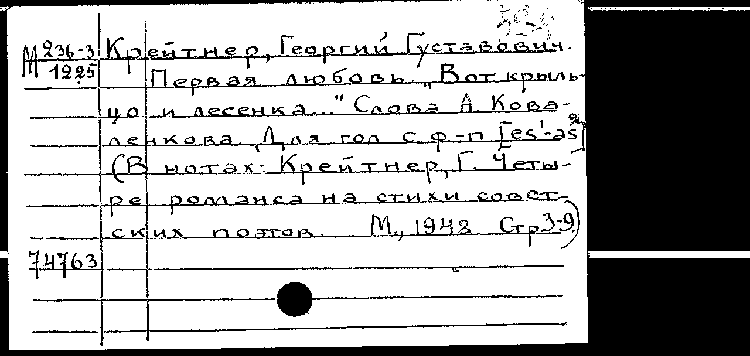 М 236-3
1225
Крейтнер, Георгий Густавович.
Первая любовь. „Вот крыль-
цо и лесенка..." Слова А. Кова-
ленкова. Для гол. с ф-п. [es¹-as²]
(В нотах: Крейтнер, Г. Четы-
ре романса на стихи совет-
ских поэтов. М., 1948. Стр. 3-9)
74763